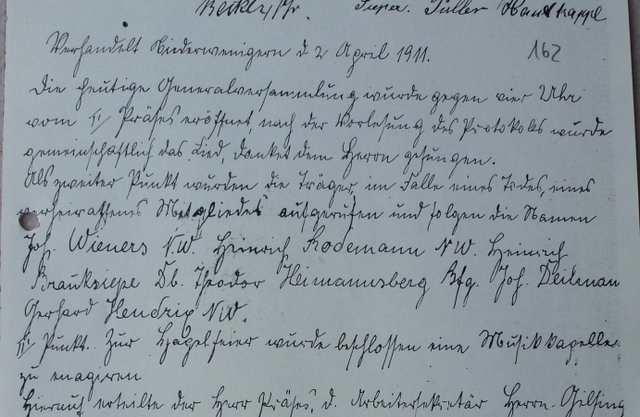 Verhandelt Niederwenigern d 2 April 1911. 162
Die heutige Generalversammlung wurde gegen vier Uhr
vom Präses eröffnet, nach der Vorlesung des Protokolls wurde
gemeinschaftlich das Lied, danket dem Herrn gesungen.
Als zweiter Punkt wurden die Träger im Falle eines Todes, eines
verheirathetes Mitgliedes aufgerufen und folgen die Namen
Joh. Wieners N.W. Heinrich Rodemann N.W. Heinrich
Brauksiepe Db. Theodor Heimannsberg Bfg. Joh. Deilman
Gerhard Hendrix N.W.
Punkt. Zur Hagelfeier wurde beschlossen eine Musikkapelle
zu engagiren
Hierauf erteilte der Herr Präses, d. Arbeitersekretär Herrn